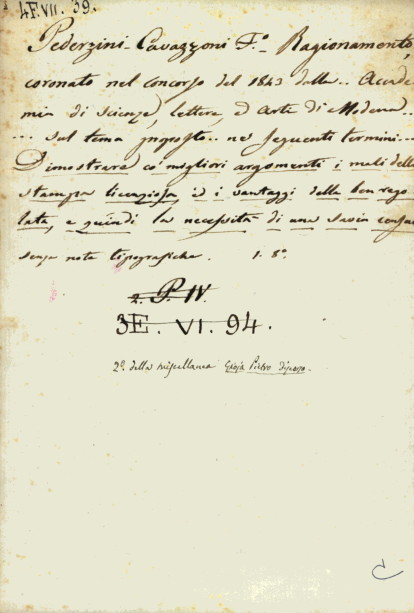 4F. VII. 39.
Pederzini Cavazzoni F.º Ragionamento,
coronato nel concorso del 1843 dalla.. Accade
mia di Scienze, lettere, ed Arti di Modena..
... sul tema proposto.. ne' seguenti termini...
Dimostrare co' migliori argomenti i mali della
stampa licenziosa, ed i vantaggi della ben rego
lata, e quindi la necessità di una savia censura
senza note tipografiche. 1. 8º
2. P. IV.
3E. VI. 94.
2º. della miscellanea Gioja Pietro
C